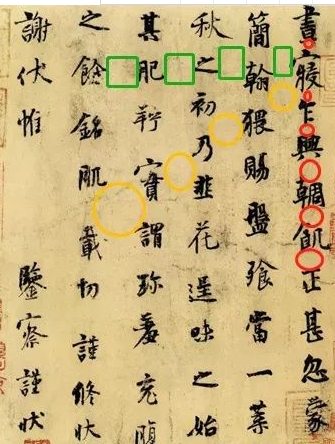 晝寢乍興輖飢正甚忽蒙
簡翰猥賜盤飧當一葉
秋之初乃韭花逞味之始
其肥羜實謂珍羞充腹
之餘銘肌載切謹修狀
謝伏惟 鑒察謹狀